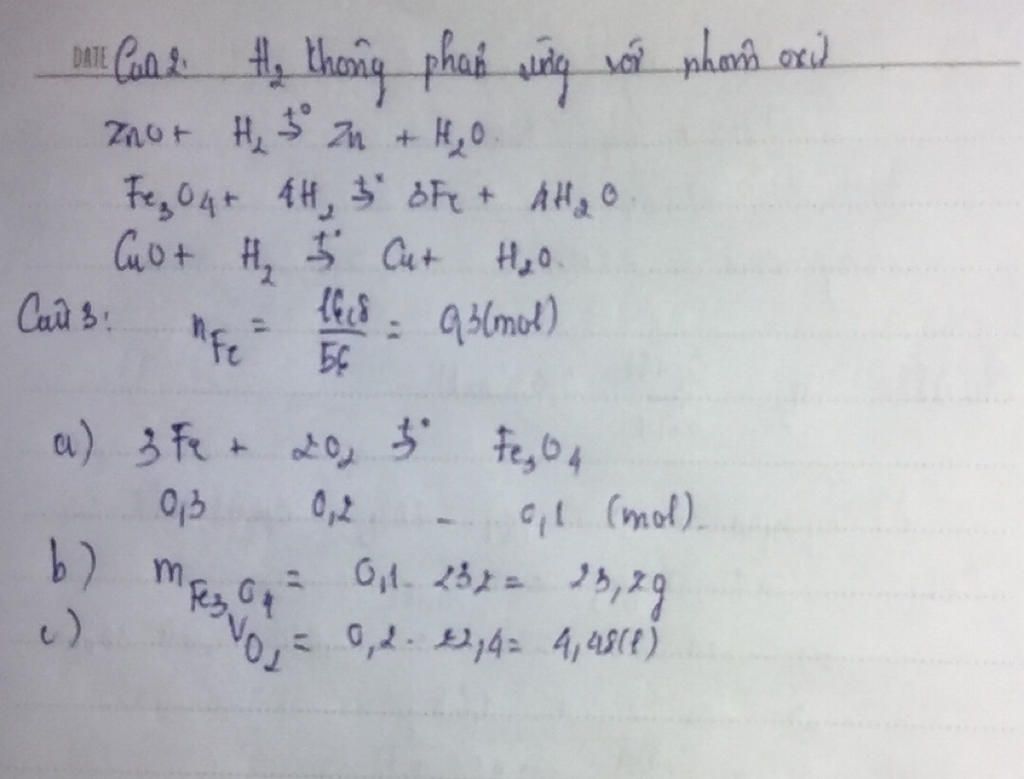 DATE Câu 2: H₂ không phản ứng với nhôm oxit
ZnO + H₂ →t° Zn + H₂O.
Fe₃O₄ + 4H₂ →t° 3Fe + 4H₂O.
CuO + H₂ →t° Cu + H₂O.
Câu 3: nFe = 16,8/56 = 0,3(mol)
a) 3Fe + 2O₂ →t° Fe₃O₄
0,3 0,2 - 0,1 (mol).
b) mFe₃O₄ = 0,1. 232 = 23,2g
c) VO₂ = 0,2. 22,4 = 4,48(l)